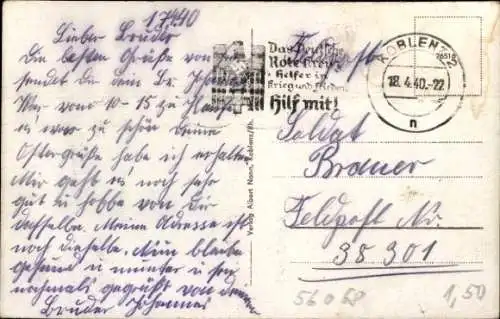 17.4.40
Lieber Bruder
Die besten Grüße von
sendet dir dein Br. Johannes
War vom 10-15 zu Hause
es war zu schön deine
Ostergrüße habe ich erhalten
Mir gehts noch sehr
gut u hoffe von dir
dasselbe. Meine Adresse ist
noch dieselbe. Nun bleibe
gesund u munter u sei
nochmals gegrüßt von deinem
Bruder Johannes
Das Deutsche
Rote Kreuz
Helfer in
Krieg und Frieden
Hilf mit!
KOBLENZ
18.4.40.-22
n
Feldpost
Soldat
Brauer
Feldpost Nr.
38 301
56068
1,50
Verlag Albert Nonn, Koblenz/Rh.